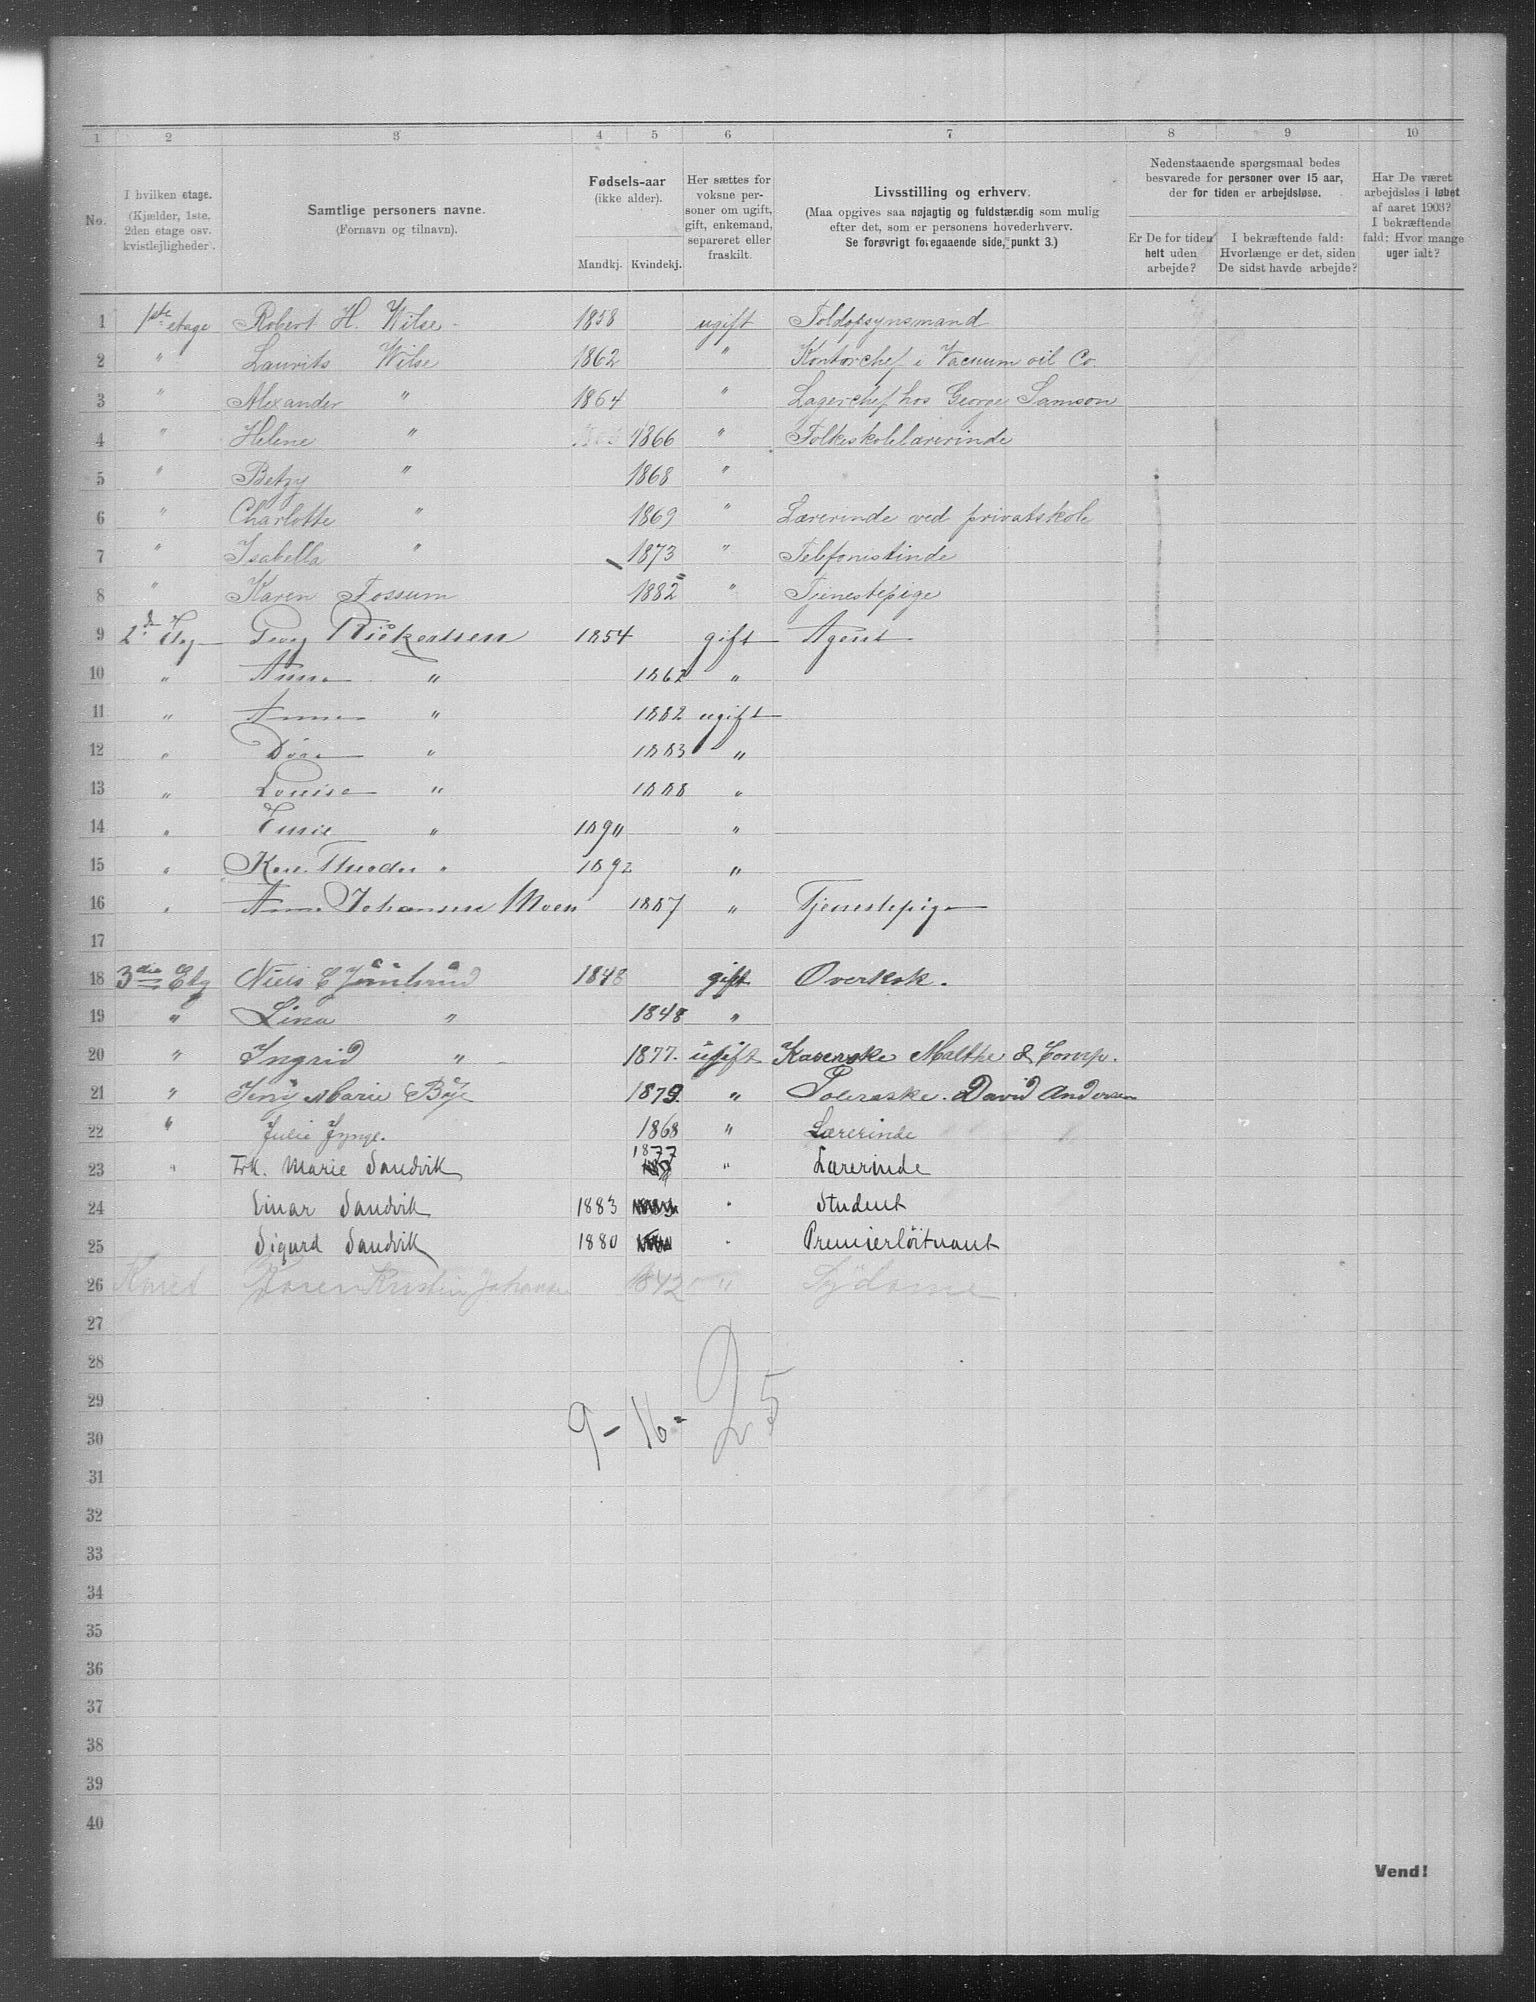 1 2 3 4 5 6 7 8 9 10
No.
I hvilken etage.
(Kjælder, 1ste.
2den etage osv.
kvistlejligheder).
Samtlige personers navne.
(Fornavn og tilnavn).
Fødsels-aar
(ikke alder).
Mandkj. Kvindekj.
Her sættes for
voksne per-
soner om ugift,
gift, enkemand,
separeret eller
fraskilt.
Livsstilling og erhverv.
(Maa opgives saa nøjagtig og fuldstændig som mulig
efter det, som er personens hovederhverv.
Se forøvrigt foregaaende side, punkt 3.)
Nedenstaaende spørgsmaal bedes
besvarede for personer over 15 aar,
der for tiden er arbejdsløse.
Er De for tiden
helt uden
arbejde?
I bekræftende fald:
Hvorlænge er det, siden
De sidst havde arbejde?
Har De været
arbejdsløs i løbet
af aaret 1903?
I bekræftende
fald: Hvor mange
uger ialt?
1 1ste etage Robert H. Wilse 1858 ugift Toldopsynsmand
2 " Laurits Wilse 1862 " Kontorchef i Vacuum oil Co.
3 " Alexander " 1864 " Lagerchef hos George Samson
4 " Helene " 1866 " Folkeskolelærerinde
5 " Betzy " 1868 "
6 " Charlotte " 1869 " Lærerinde ved privatskole
7 " Isabella " 1873 " Telefonistinde
8 " Karen Fossum 1882 " Tjenestepige
9 2d Etg Georg 1854 gift Agent
10 " Anna " 1862 "
11 " Anna " 1882 ugift
12 " Dora " 1883 "
13 " Louise " 1888 "
14 " " 1890 "
15 " " 1892 "
16 " Anna Johansen Moen 1887 " Tjenestepige
17
18 3die Etg Niels C 1848 gift Overkok.
19 " Lina " 1848 "
20 " Ingrid " 1877. ugift Malthe & Comp.
21 " Jeny Marie Bye 1879. " Polerske. David Andersen
22 " Julie 1868 " Lærerinde
23 " Frk. Marie Sandvik 1877 " Lærerinde
24 Einar Sandvik 1883 " Student
25 Sigurd Sandvik 1880 " Premierløitnant
26 Karen Kristin Johansen 1842 " Sydame
27
28
29
9 - 16 = 25
30
31
32
33
34
35
36
37
38
39
40
Vend!